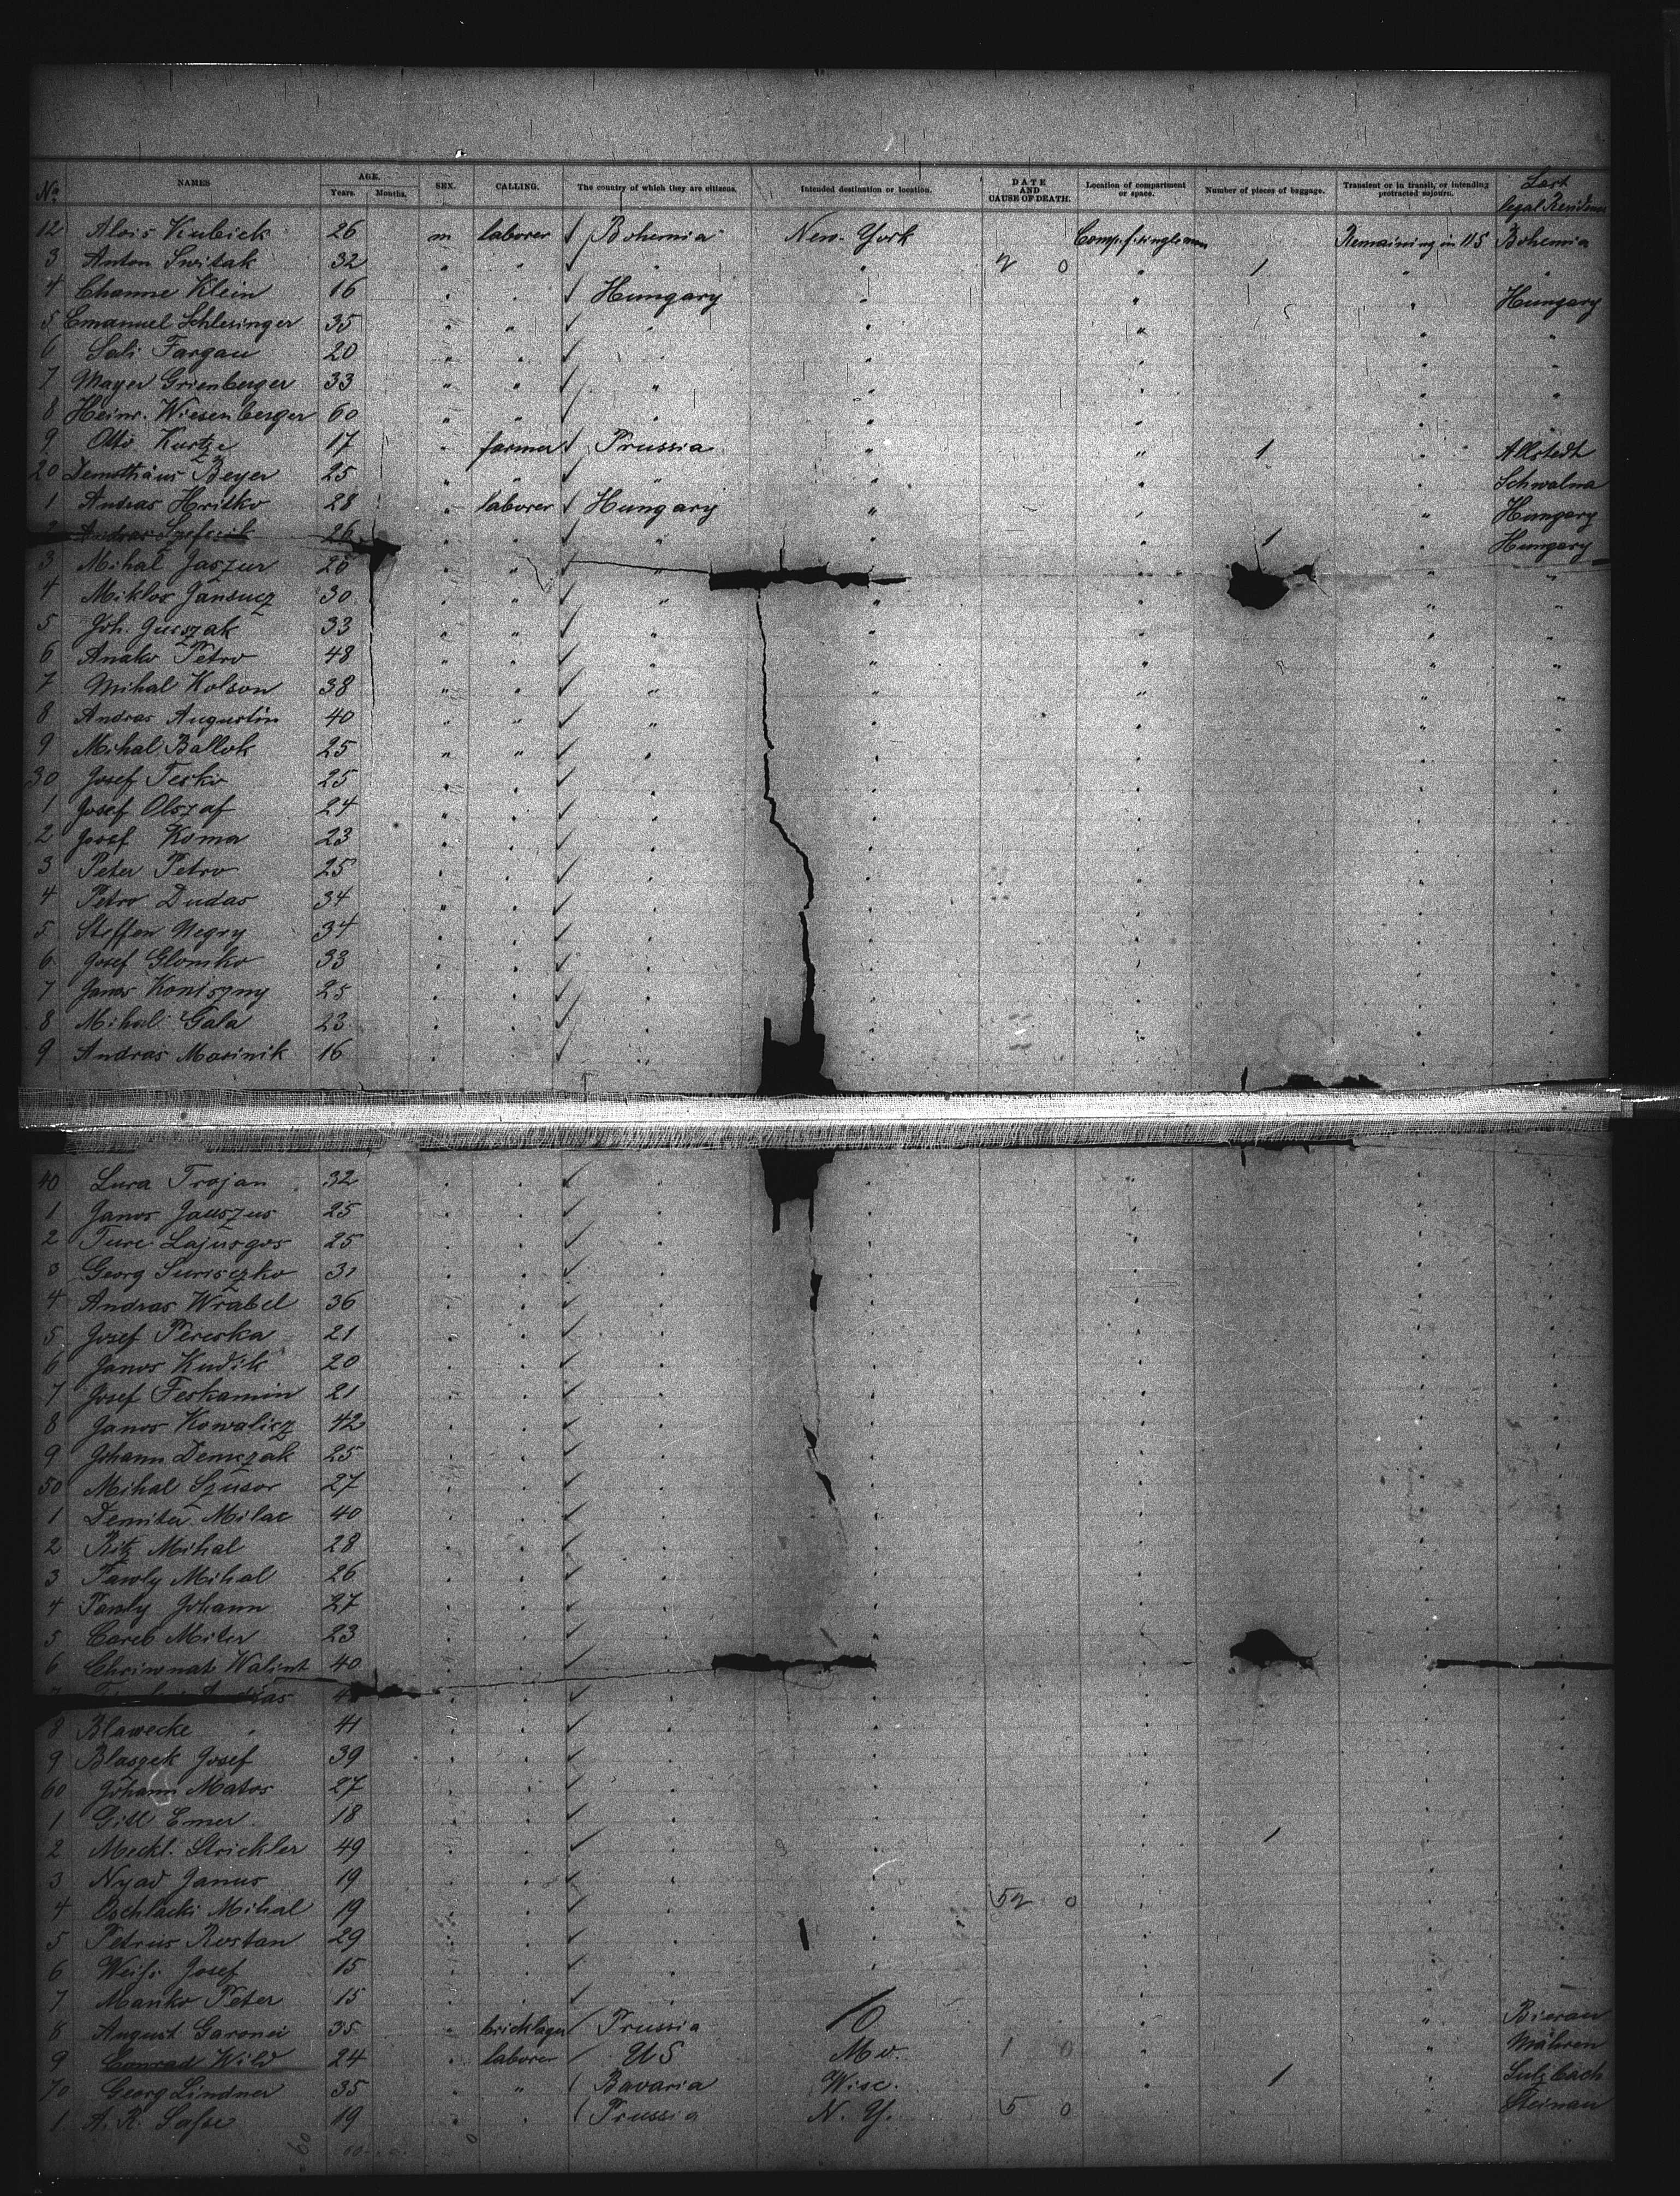 No. NAMES AGE. Years. Months. SEX. CALLING. The country of which they are citizens. Intended destination or location. DATE AND CAUSE OF DEATH. Location of compartment or space. Number of pieces of baggage. Transient or in transit, or intending protracted sojourn. Last legal Residence
12 Alois Kubick 26 m laborer √ Bohemia New-York Comp. f. single men Remaining in US Bohemia
3 Anton Switak 32 " " √ " " 2 0 " 1 " "
4 Channe Klein 16 " " √ Hungary " " " Hungary
5 Emanuel Schlesinger 35 " " √ " " " " "
6 Sali Fargau 20 " " √ " " " " "
7 Mayer Grienberger 33 " " √ " " " " "
8 Heinr. Wiesenberger 60 " " √ " " " " "
9 Otto Kurtze 17 " farmer √ Prussia " " 1 " Allstedt
20 Demothäus Beyer 25 " " √ " " " " Schwalma
1 Andras Hritko 28 " laborer √ Hungary " " " Hungary
2 Andras 26 " " √ " " " 1 " Hungary
3 Mihal Jaszur 26 " " √ " " " "
4 Miklos Jansucz 30 " " √ " " " " "
5 Joh. Guszak 33 " " √ " " " " "
6 Anako Petro 48 " " √ " " " " "
7 Mihal Kolson 38 " " √ " " " " "
8 Andras Augustin 40 " " √ " " " " "
9 Mihal Ballok 25 " " √ " " " " "
30 Josef Tesko 25 " " √ " " " " "
1 Josef Olszaf 24 " " √ " " " " "
2 Josef Koma 23 " " √ " " " " "
3 Peter Petro 25 " " √ " " " " "
4 Petro Dudas 34 " " √ " " " " "
5 Steffen Negry 34 " " √ " " " " "
6 Josef Glomko 33 " " √ " " " " "
7 Janos Koniszny 25 " " √ " " " " "
8 Mihal Gala 23 " " √ " " " " "
9 Andras Masinik 16 " " √ " " " " "
40 Lura Trojan 32 " " √ " " " "
1 Janos Jauszus 25 " " √ " " " " "
2 Ture Lajusgos 25 " " √ " " " " "
3 Georg Surisczko 31 " " √ " " " " "
4 Andras Wrabel 36 " " √ " " " " "
5 Josef Pereska 21 " " √ " " " " "
6 Janos Kudik 20 " " √ " " " " "
7 Josef Feskamin 21 " " √ " " " " "
8 Janos Kowalicz 42 " " √ " " " " "
9 Johann Demczak 25 " " √ " " " " "
50 Mihal Szusor 27 " " √ " " " " "
1 Demiter Milac 40 " " √ " " " " "
2 Ritz Mihal 28 " " √ " " " " "
3 Pawly Mihal 26 " " √ " " " " "
4 Pawly Johann 27 " " √ " " " " "
5 Careb Miter 23 " " √ " " " " "
6 Walint 40 " " √ " " " "
7 4 " " √ " " " " "
8 Blawecke " 41 " " √ " " " " "
9 Blaszek Josef 39 " " √ " " " " "
60 Johann Matos 27 " " √ " " " " "
1 Gill Emer 18 " " √ " " " " "
2 Meckl. Strickler 49 " " √ " " " 1 " "
3 Nyad Janus 19 " " √ " " " " "
4 Oschlacki Mihal 19 " " √ " " 52 0 " " "
5 Petrus Rostan 29 " " √ " " " " "
6 Weiss Josef 15 " " √ " " " " "
7 Manko Peter 15 " " √ " " " " "
8 August Garonei 35 " bricklayer / Prussia 10 " " Bierau
9 Conrad Wild 24 " laborer / US Mo. 1 0 " " Mähren
70 Georg Lindner 35 " " / Bavaria Wisc. " 1 " Sulzbach
1 A. R. Sasse 19 " " / Prussia N. Y. 5 0 " " Steinau